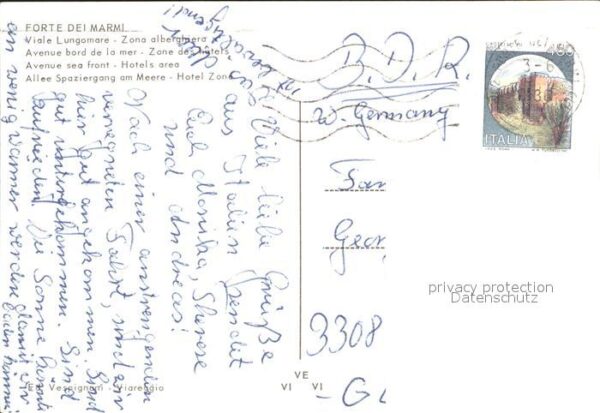 FORTE DEI MARMI
Viale Lungomare - Zona alberghiera
Avenue bord de la mer - Zone des hôtels
Avenue sea front - Hotels area
Allee Spaziergang am Meere - Hotel Zone
Viele liebe Grüße
aus Italien sendet
Euch Monika,
und Andreas!
Nach einer anstrengenden
verregneten Fahrt, sind wir
hier gut angekommen. Sind
gut untergekommen. Sind
zufrieden. Die Sonne könnte
ein wenig wärmer werden damit wir
baden können!
B.D.R.
W. Germany
Fam
Geor
3308
-G
ITALIA
privacy protection
Datenschutz
VE
VI VI
Vespignani - Viareggio